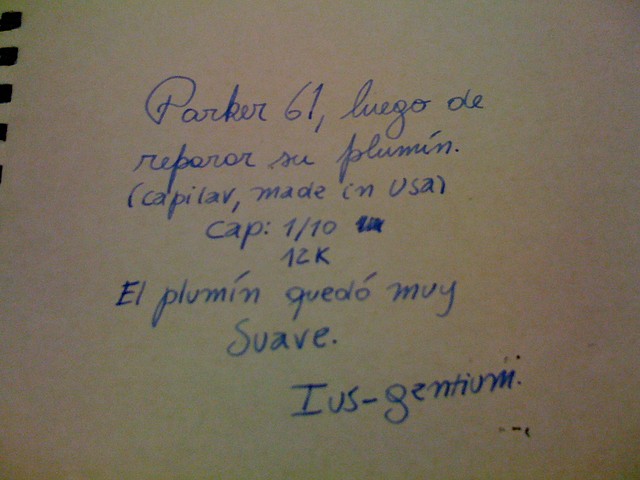 Parker 61, luego de
reparar su plumín.
(capilar, made in USA)
Cap: 1/10
12K
El plumín quedó muy
Suave.
Ius-gentium.